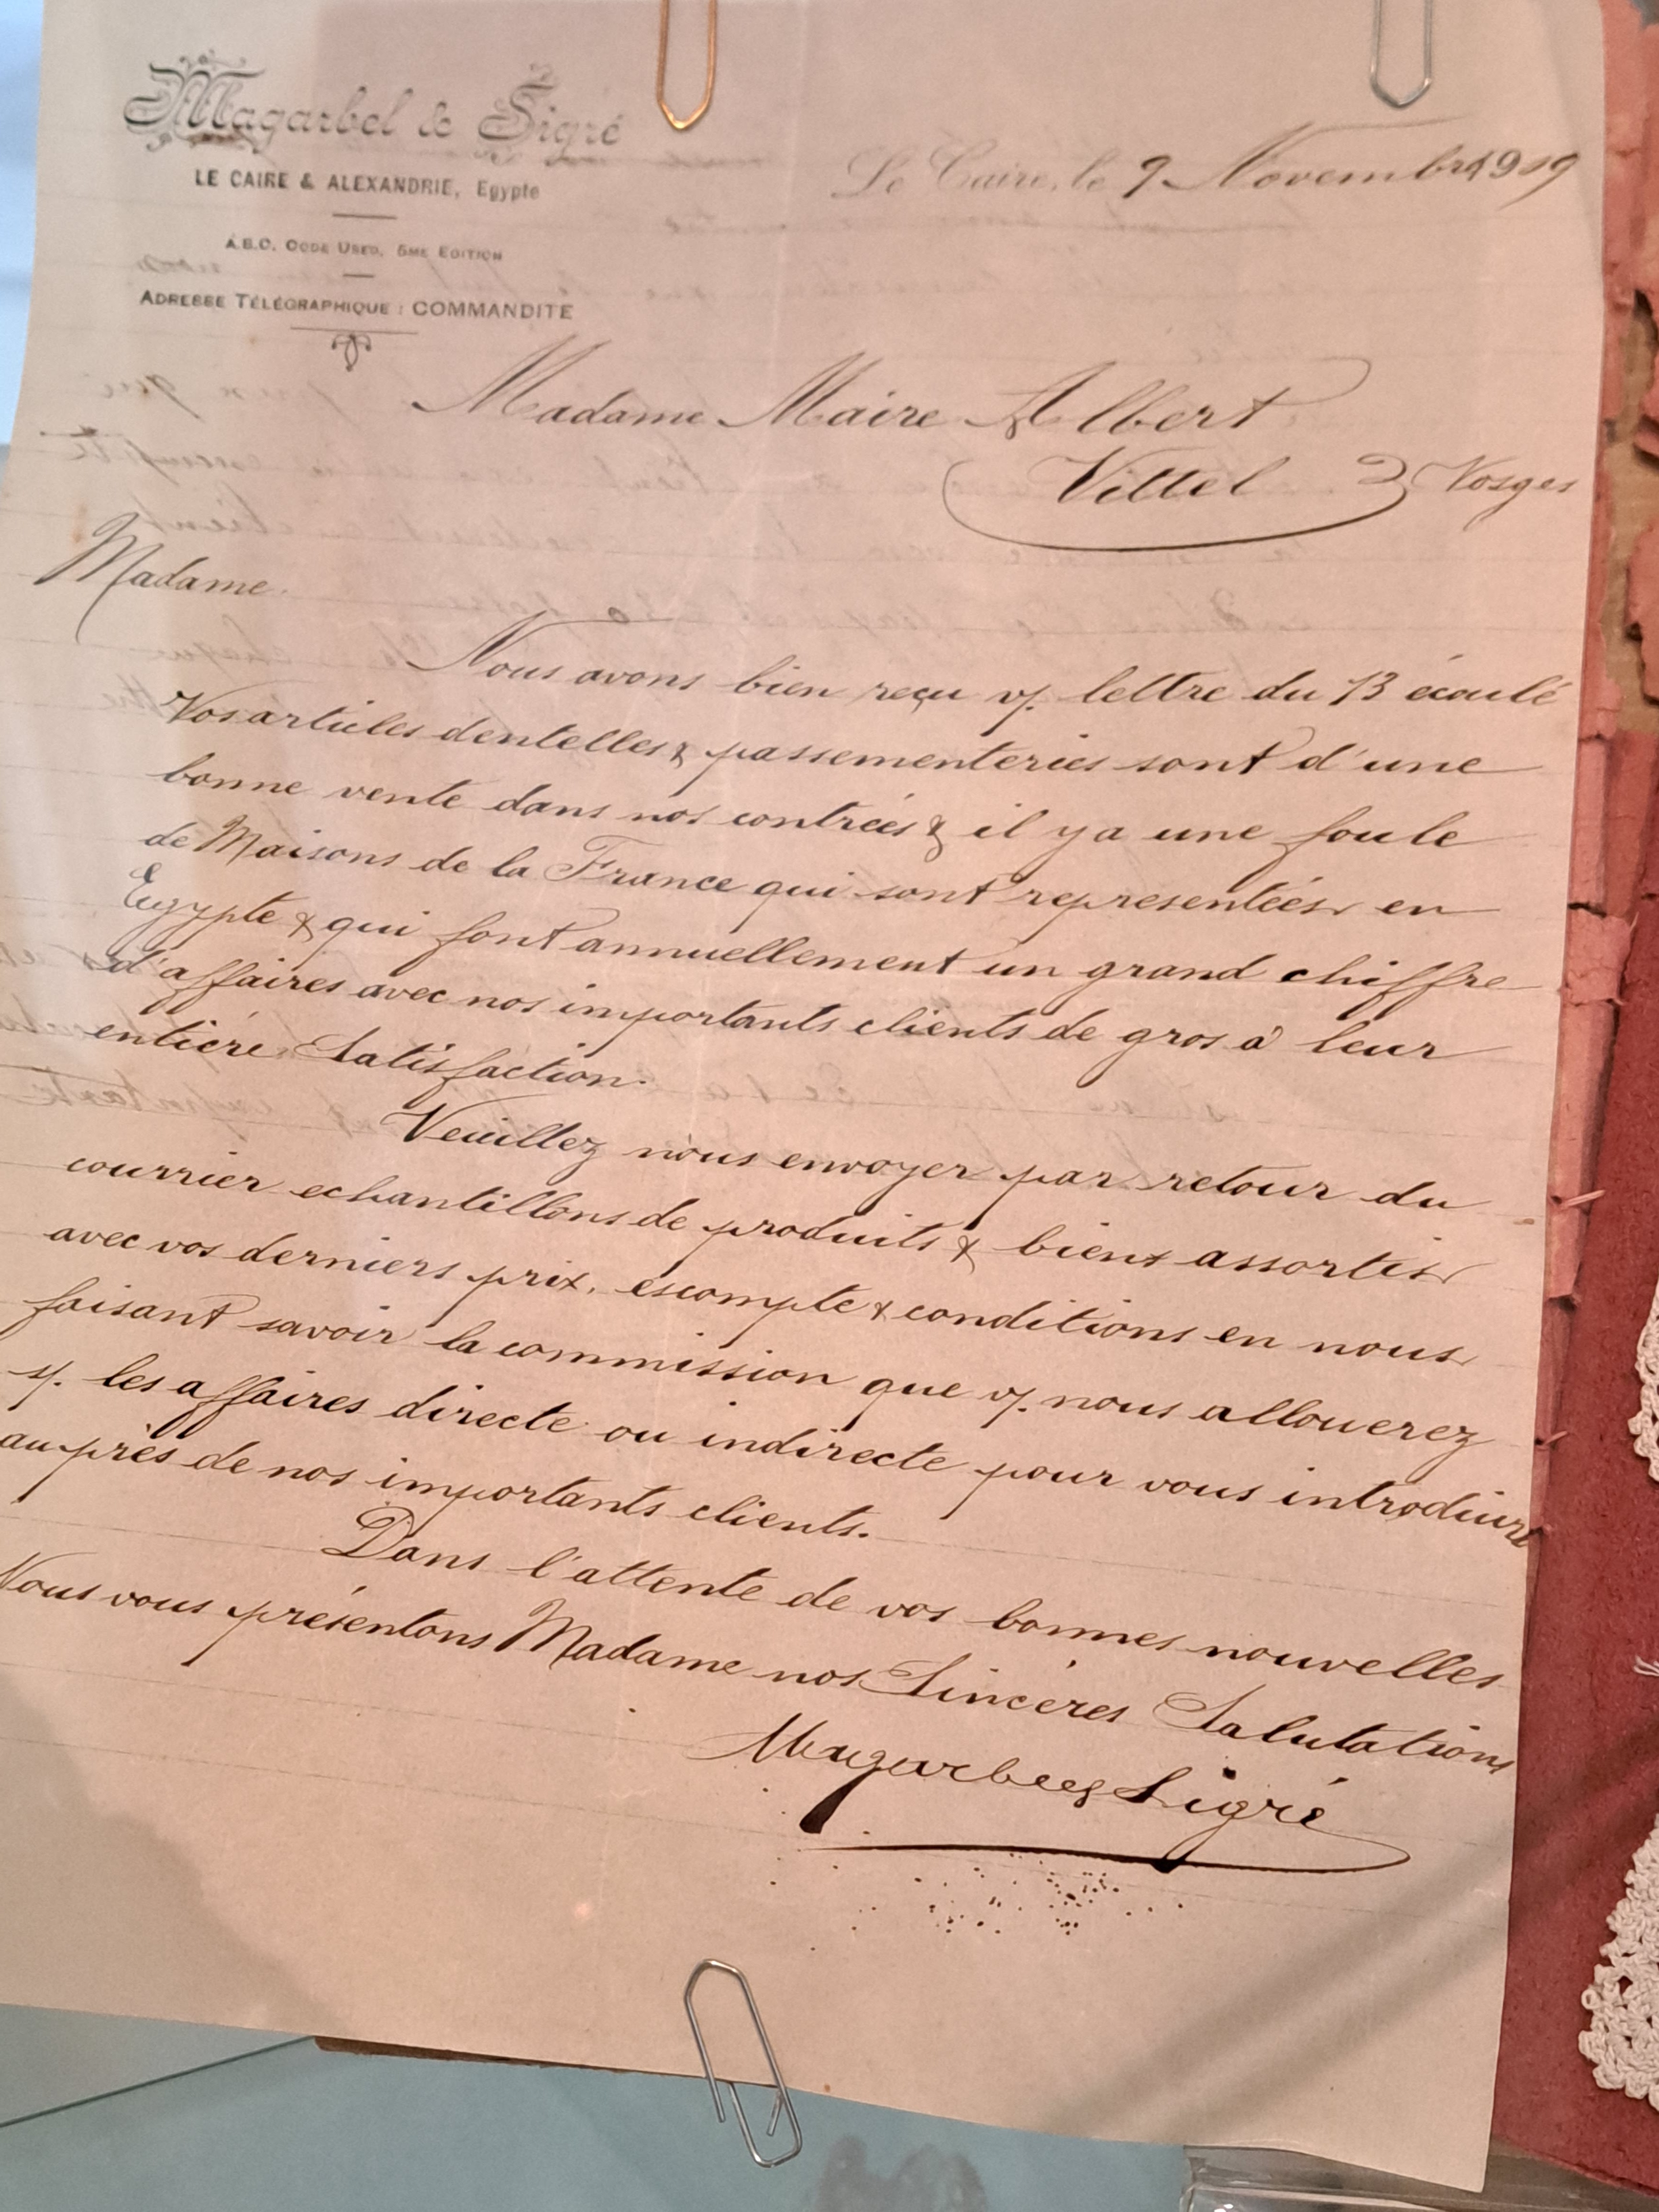 Magarbel & Sigré
LE CAIRE & ALEXANDRIE, Egypte
A.B.C. CODE USED, 5ME EDITION
ADRESSE TÉLÉGRAPHIQUE : COMMANDITE
Le Caire, le 9 Novembre 1909
Madame Maire Albert
Vittel Vosges
Madame.
Nous avons bien reçu v/. lettre du 13 écoulé
Vos articles dentelles & passementeries sont d'une
bonne vente dans nos contrées & il y a une foule
de Maisons de la France qui sont representées en
Egypte & qui font annuellement un grand chiffre
d'affaires avec nos importants clients de gros à leur
entiére Satisfaction.
Veuillez nous envoyer par retour du
courrier echantillons de produits & biens assortis
avec vos derniers prix, escompte & conditions en nous
faisant savoir la commission que v/. nous allouerez
s/. les affaires directe ou indirecte pour vous introduire
auprès de nos importants clients.
Dans l'attente de vos bonnes nouvelles
Nous vous présentons Madame nos Sincéres Salutations
Magarbel & Sigré